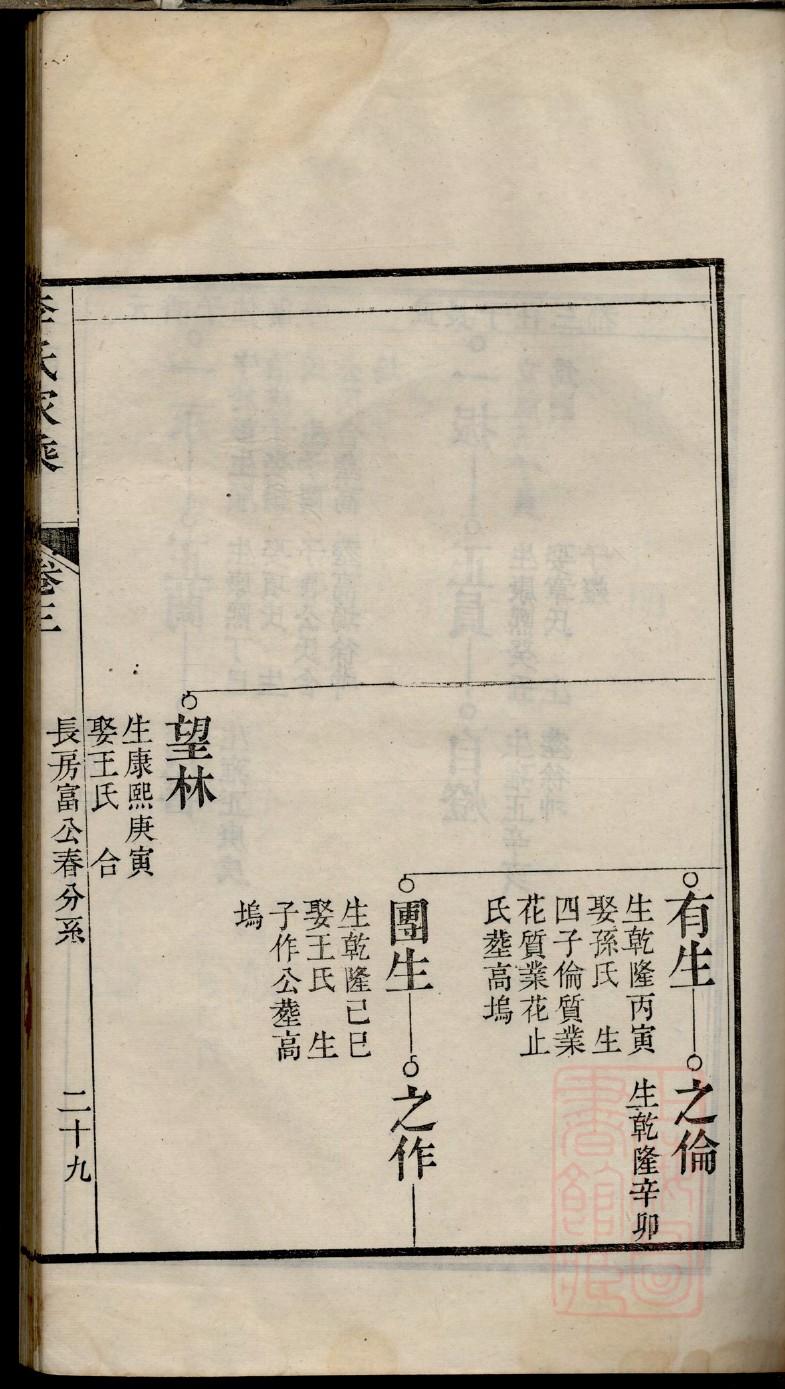 有生
生乾隆丙寅
娶孫氏 生
四子倫質業
花質業花止
氏塟高塢
之倫
生乾隆辛卯
團生
生乾隆己巳
娶王氏 生
子作公塟高
塢
之作
望林
生康熙庚寅
娶王氏 合
李氏家乘
卷三
長房富公春分系
二十九